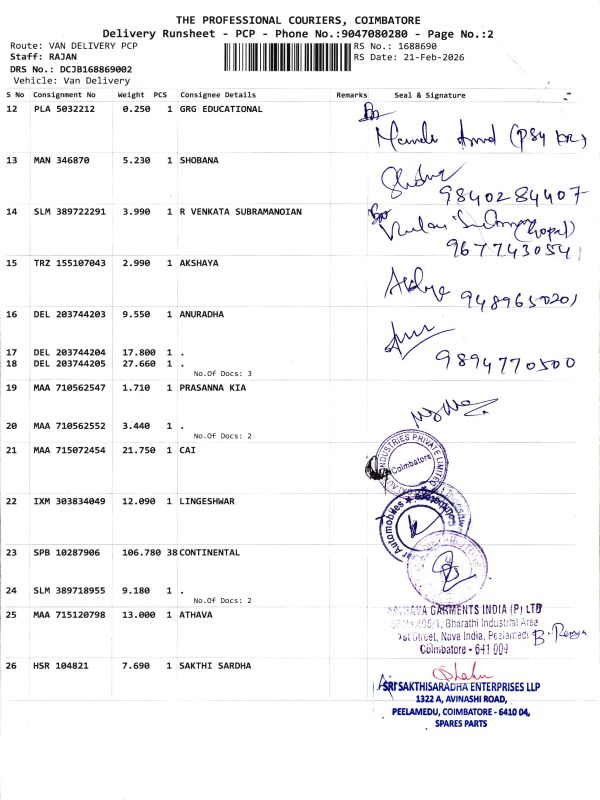 THE PROFESSIONAL COURIERS, COIMBATORE
Delivery Runsheet - PCP - Phone No.:9047080280 - Page No.:2
Route: VAN DELIVERY PCP
RS No.: 1688690
Staff: RAJAN
RS Date: 21-Feb-2026
DRS No.: DCJB168869002
Vehicle: Van Delivery
S No Consignment No Weight PCS Consignee Details Remarks Seal & Signature
12 PLA 5032212 0.250 1 GRG EDUCATIONAL
13 MAN 346870 5.230 1 SHOBANA
9840284407
14 SLM 389722291 3.990 1 R VENKATA SUBRAMANOIAN
(Gopal)
9677430541
15 TRZ 155107043 2.990 1 AKSHAYA
9489650201
16 DEL 203744203 9.550 1 ANURADHA
9894770500
17 DEL 203744204 17.800 1 .
18 DEL 203744205 27.660 1 .
No.Of Docs: 3
19 MAA 710562547 1.710 1 PRASANNA KIA
20 MAA 710562552 3.440 1 .
No.Of Docs: 2
21 MAA 715072454 21.750 1 CAI
INDUSTRIES PRIVATE LIMITED
Coimbatore
22 IXM 303834049 12.090 1 LINGESHWAR
Automobiles
23 SPB 10287906 106.780 38 CONTINENTAL
24 SLM 389718955 9.180 1 .
No.Of Docs: 2
25 MAA 715120798 13.000 1 ATHAVA
GARMENTS INDIA (P) LTD
Bharathi Industrial Area
1st Street, Nava India, Peelamedu
Coimbatore - 641 004
26 HSR 104821 7.690 1 SAKTHI SARDHA
SRI SAKTHISARADHA ENTERPRISES LLP
1322 A, AVINASHI ROAD,
PEELAMEDU, COIMBATORE - 6410 04,
SPARES PARTS